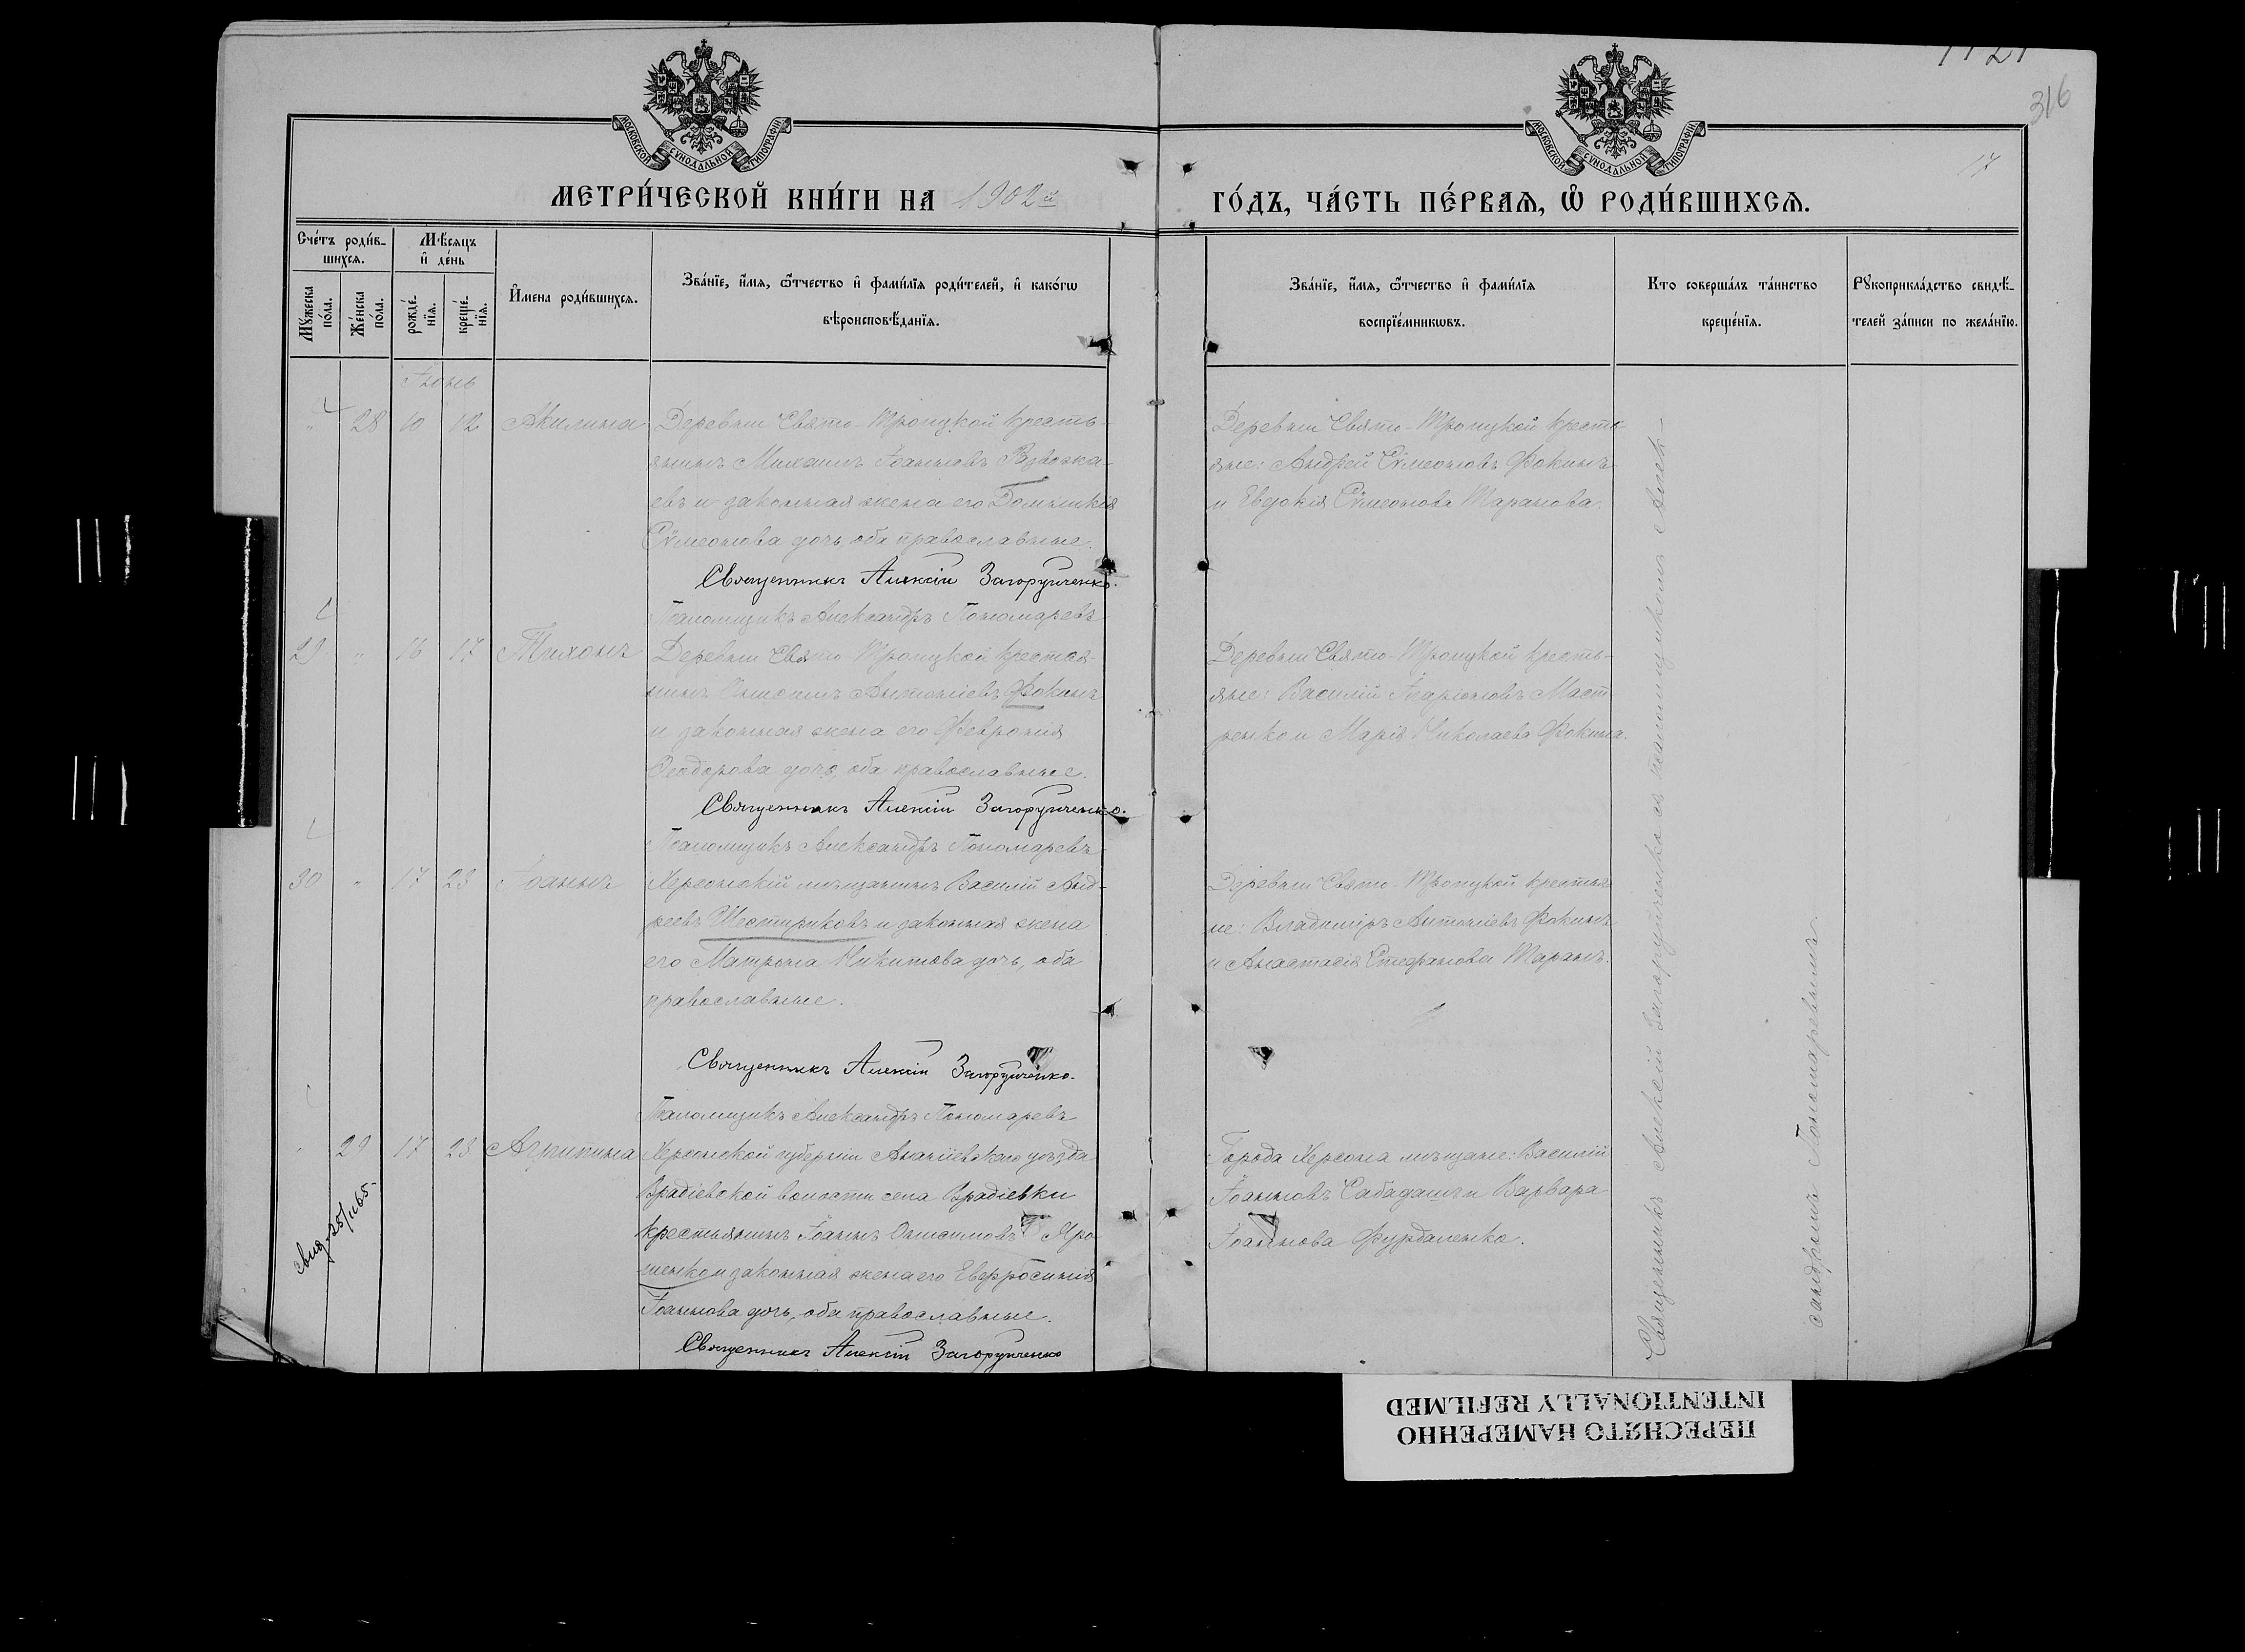 1121
316
17
МОСКОВСКОЙ СѴНОДАЛЬНОЙ ТИПОГРАФІИ
МОСКОВСКОЙ СѴНОДАЛЬНОЙ ТИПОГРАФІИ
МЕТРИ́ЧЕСКОЙ КНИ́ГИ НА 1902й ГО́ДЪ, ЧА́СТЬ ПЕ́РВАѦ, Ѽ РОДИ́ВШИХСѦ.
Сче́тъ роди́в-
шихсѧ.
Мꙋ́жеска по́ла.
Же́нска по́ла.
Мѣ́сяцъ
и҆ де́нь
рожде́-
нїѧ.
креще́-
нїѧ.
И҆мена роди́вшихсѧ.
Зва́нїе, и҆́мѧ, ѻ҆́тчество и҆ фами́лїѧ роди́телей, и҆ како́гѡ
вѣроисповѣ́данїѧ.
Зва́нїе, и҆́мѧ, ѻ҆́тчество и҆ фами́лїѧ
воспрїе́мникѡвъ.
Кто соверша́лъ та́инство
креще́нїѧ.
Рꙋкоприкла́дство свидѣ́-
телей за́писи по жела́нїю.
Іюнь
" 28 10 12 Акилина
Деревни Свято-Троицкой кресть-
янинъ Михаилъ Іоанновъ
евъ и законная жена его Домникія
Сѵмеонова дочь, оба православные.
Священникъ Алексій Загорулченко.
Псаломщикъ Александръ Пономаревъ
Деревни Свято-Троицкой кресть-
яне: Андрей Сѵмеоновъ Фокинъ
и Евдокія Сѵмеонова Таранова.
29 " 16 17 Тихонъ
Деревни Свято-Троицкой крестья-
нинъ Онисимъ Антоніевъ Фокинъ
и законная жена его Февронія
Ѳеодорова дочь, оба православные.
Священникъ Алексій Загорулченко.
Псаломщикъ Александръ Пономаревъ
Деревни Свято-Троицкой кресть-
яне: Василій Иларіоновъ
ренко и Марія Николаева Фокина.
30 " 17 23 Іоаннъ
Херсонскій мѣщанинъ Василій Анд-
реевъ Шестириковъ и законная жена
его Матрона Никитова дочь, оба
православные.
Священникъ Алексій Загорулченко.
Псаломщикъ Александръ Пономаревъ
Деревни Свято-Троицкой крестья-
не: Владиміръ Антоніевъ Фокинъ
и Анастасія Стефанова Таранъ.
" 29 17 23 Агрипина
Херсонской губерніи Ананіевскаго уѣзда
Врадіевской волости села Врадіевки
крестьянинъ Іоаннъ Онисимовъ Яро-
шенко и законная жена его Евфросинія
Іоаннова дочь, оба православные.
Священникъ Алексій Загорулченко
Города Херсона мѣщане: Василій
Іоанновъ Сабадашъ и Варвара
Іоаннова Фурдаленко.
Священникъ Алексій Загорулченко съ псаломщикомъ Алек-
сандромъ Пономаревымъ.
ПЕРЕСНЯТО НАМЕРЕННО
INTENTIONALLY REFILMED